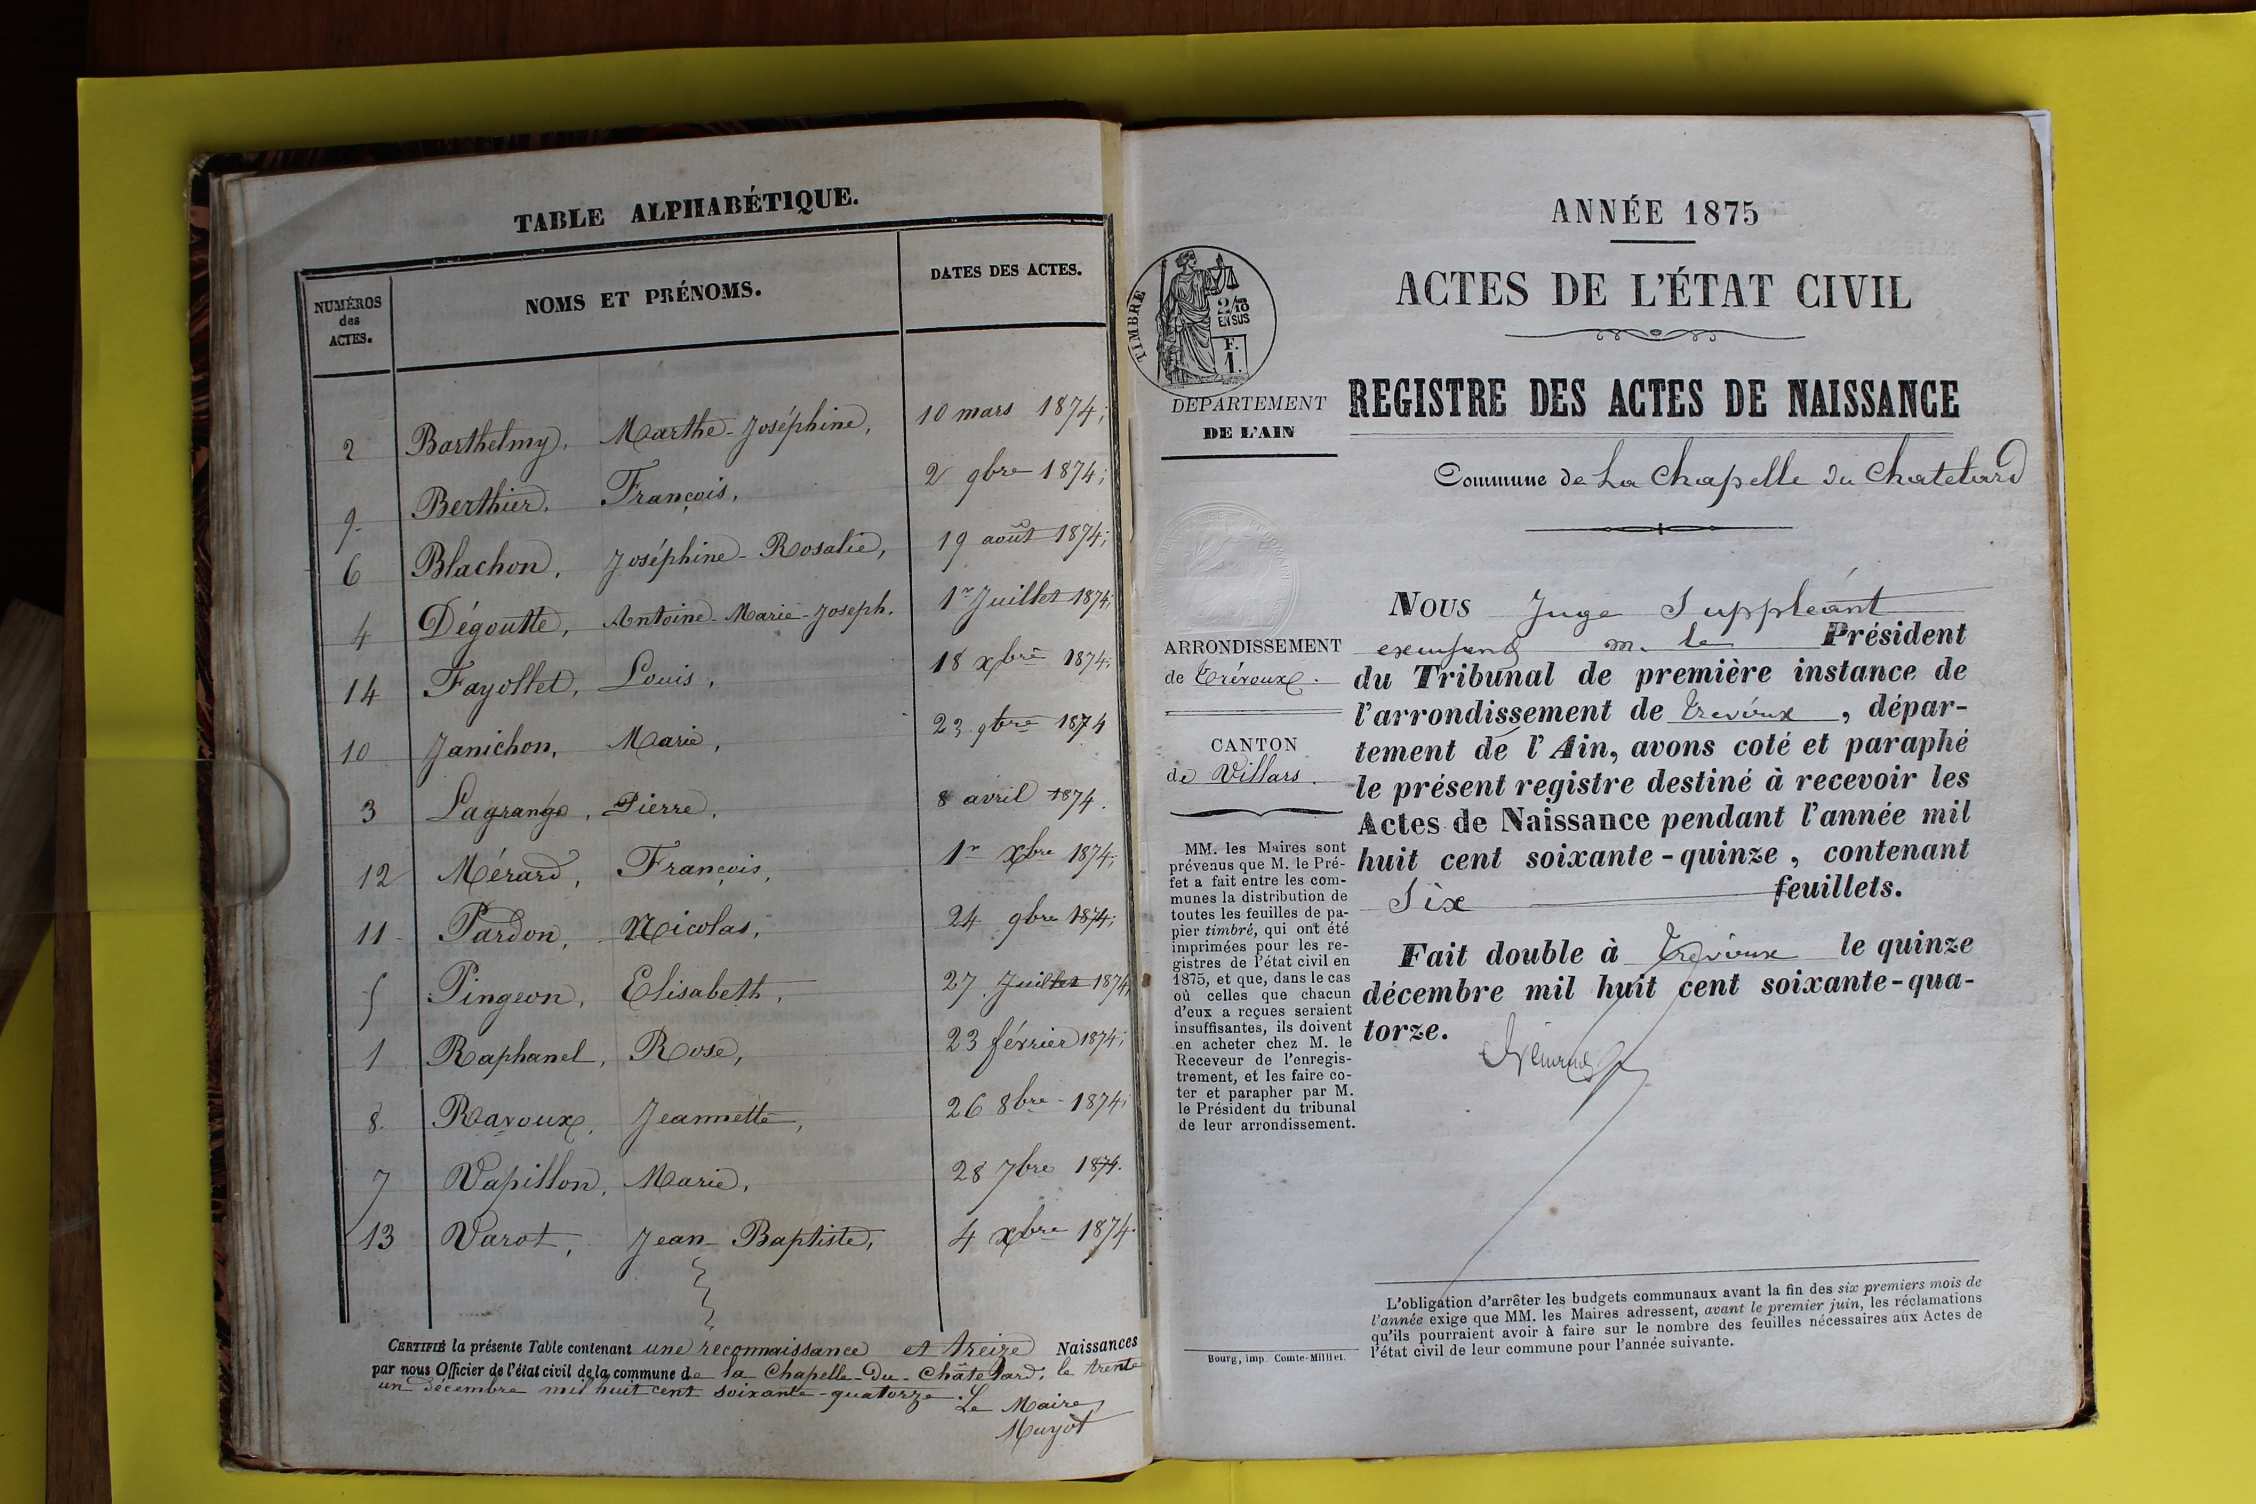 TABLE ALPHABÉTIQUE.
NUMÉROS des ACTES. NOMS ET PRÉNOMS. DATES DES ACTES.
2 Barthelmy, Marthe-Joséphine, 10 mars 1874;
9. Berthier, François, 2 9bre 1874;
6 Blachon, Joséphine-Rosalie, 19 août 1874;
4 Dégoutte, Antoine-Marie-Joseph. 1er Juillet 1874;
14 Fayollet, Louis, 18 xbre 1874;
10 Janichon, Marie, 23 9bre 1874
3 Lagrange, Pierre, 8 avril 1874.
12 Mérard, François, 1er xbre 1874;
11 Pardon, Nicolas, 24 9bre 1874;
5 Pingeon, Elisabeth, 27 Juillet 1874,
1 Raphanel, Rose, 23 février 1874;
8. Ravoux, Jeannette, 26 8bre 1874;
7 Vapillon, Marie, 28 7bre 1874.
13 Varot, Jean-Baptiste, 4 xbre 1874.
CERTIFIÉ la présente Table contenant une reconnaissance et treize Naissances
par nous Officier de l'état civil de la commune de la Chapelle-Du-Châtelard, le trente
un décembre mil huit cent soixante-quatorze.
Le Maire
ANNÉE 1875
ACTES DE L'ÉTAT CIVIL
REGISTRE DES ACTES DE NAISSANCE
Commune de La Chapelle du Chatelard
TIMBRE
2/10
EN SUS
F.
1.
DÉPARTEMENT
DE L'AIN
ARRONDISSEMENT
de Trévoux.
CANTON
de Villars.
MM. les Maires sont
prévenus que M. le Pré-
fet a fait entre les com-
munes la distribution de
toutes les feuilles de pa-
pier timbré, qui ont été
imprimées pour les re-
gistres de l'état civil en
1875, et que, dans le cas
où celles que chacun
d'eux a reçues seraient
insuffisantes, ils doivent
en acheter chez M. le
Receveur de l'enregis-
trement, et les faire co-
ter et parapher par M.
le Président du tribunal
de leur arrondissement.
Bourg, imp. Comte-Milliet.
NOUS Juge Suppléant
m. le Président
du Tribunal de première instance de
l'arrondissement de Trévoux, dépar-
tement de l'Ain, avons coté et paraphé
le présent registre destiné à recevoir les
Actes de Naissance pendant l'année mil
huit cent soixante-quinze, contenant
Six feuillets.
Fait double à Trévoux le quinze
décembre mil huit cent soixante-qua-
torze.
L'obligation d'arrêter les budgets communaux avant la fin des six premiers mois de
l'année exige que MM. les Maires adressent, avant le premier juin, les réclamations
qu'ils pourraient avoir à faire sur le nombre des feuilles nécessaires aux Actes de
l'état civil de leur commune pour l'année suivante.